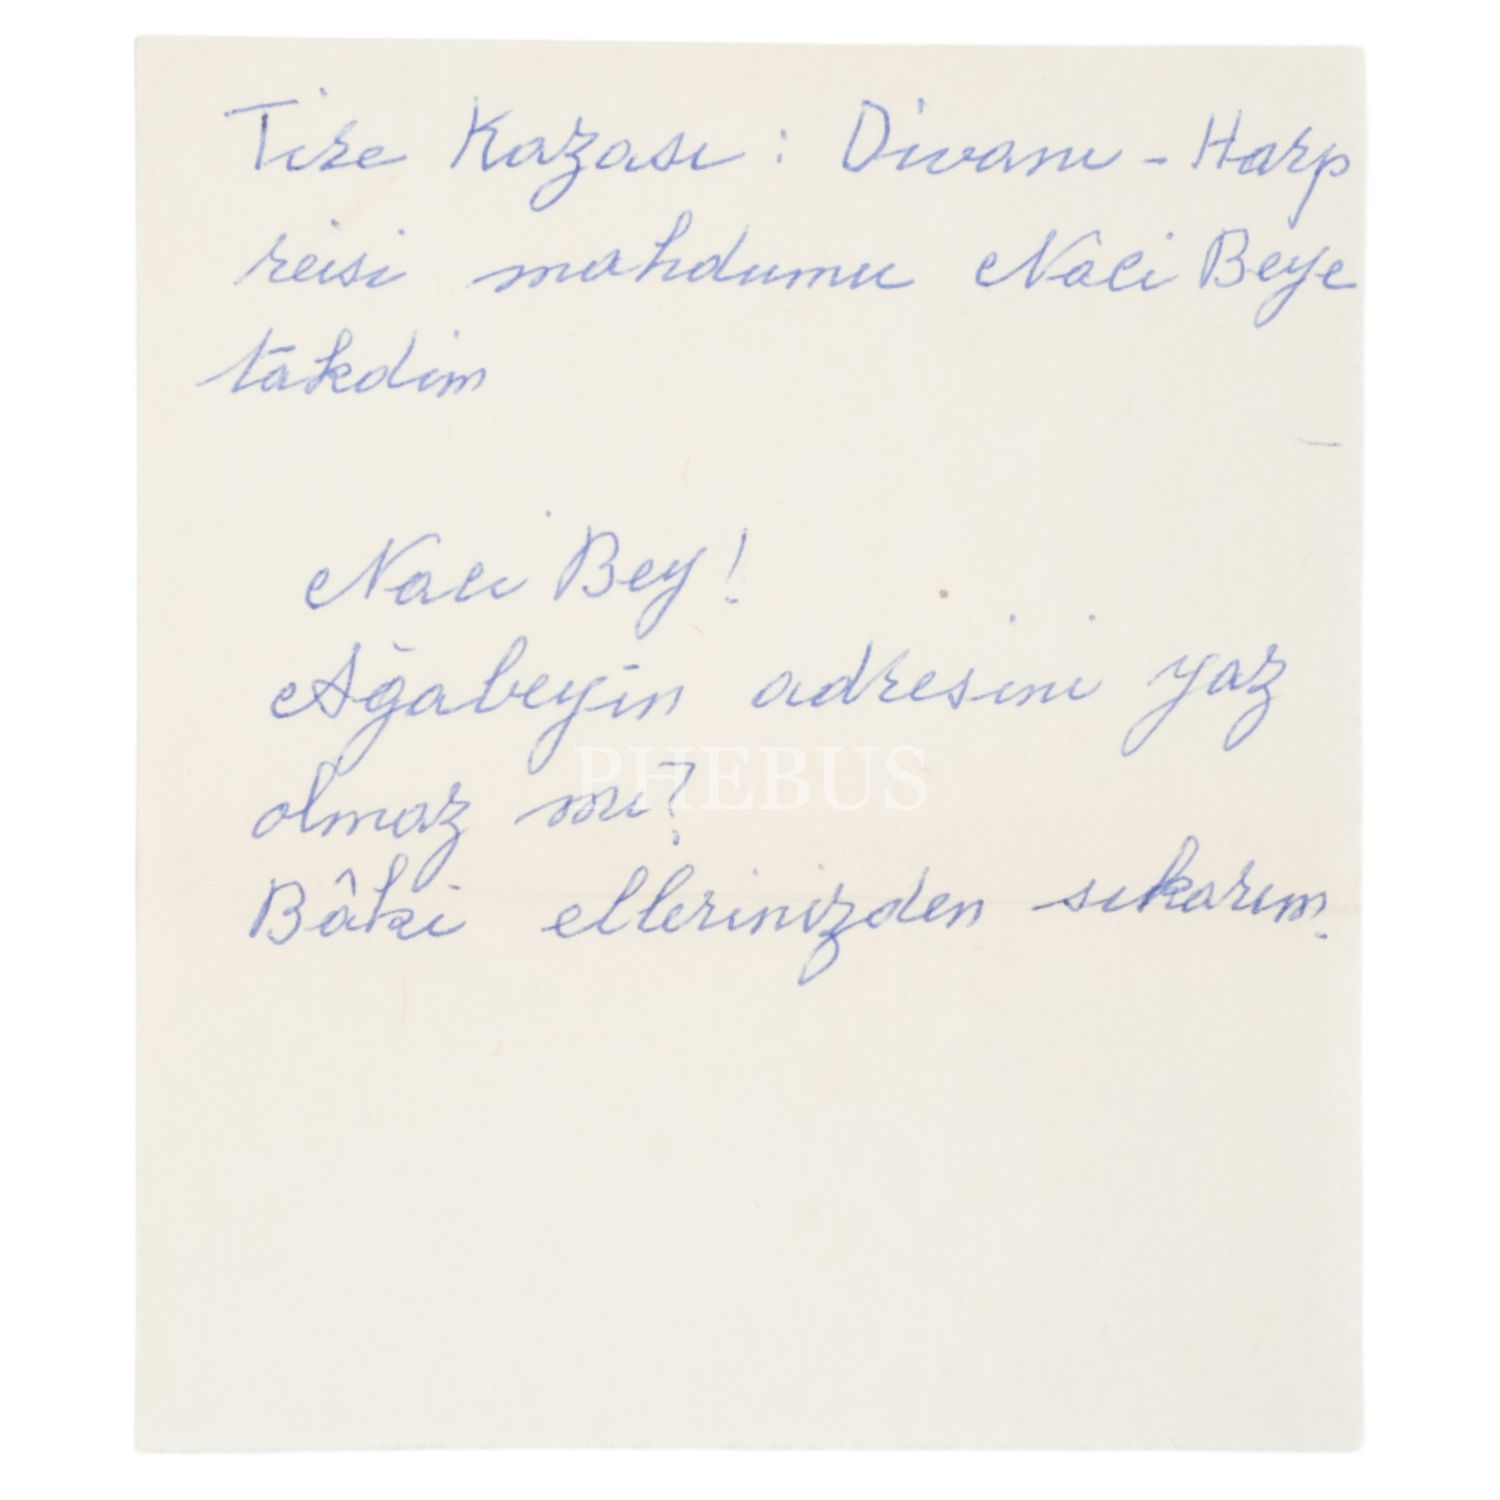 Tire Kazası : Divanı - Harp
reisi mahdumu Nâci Beye
takdim
Naci Bey!
Ağabeyin adresini yaz
olmaz mı?
PHEBUS
Bâki ellerinizden sıkarım.